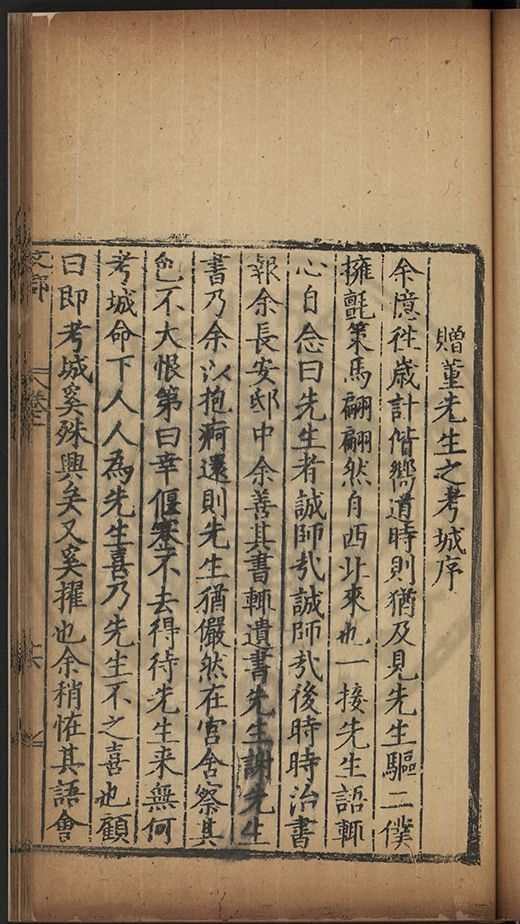 贈董先生之考城序
余憶徃歲計偕嚮道時則猶及見先生驅二僕
擁氊策馬翩翩然自西北來也一接先生語輒
心自念曰先生者誠師㢤誠師㢤後時時治書
報余長安邸中余善其書輒遺書先生謝先生
書乃余以抱痾還則先生猶儼然在官舍察其
色不大恨第曰幸偃蹇不去得待先生来無何
考城命下人人為先生喜乃先生不之喜也顧
曰即考城奚殊興矣又奚擢也余稍恠其語會
文部